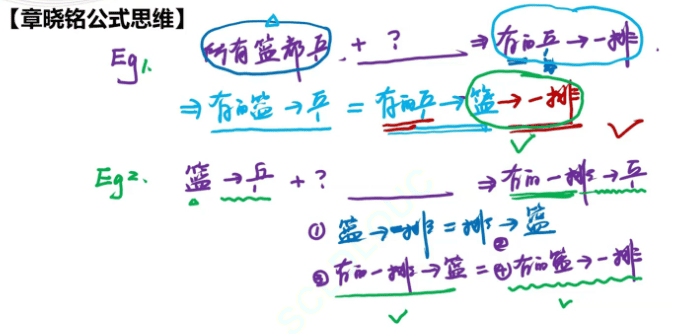 【章晓铭公式思维】
Eg1. 所有篮都乒 + ? ⇒ 有的乒→一排.
⇒ 有的篮→乒 = 有的乒→篮→一排
Eg2. 篮→乒 + ? ⇒ 有的一排→乒
① 篮→一排 = 排→篮 ②
③ 有的一排→篮 = ④ 有的篮→一排